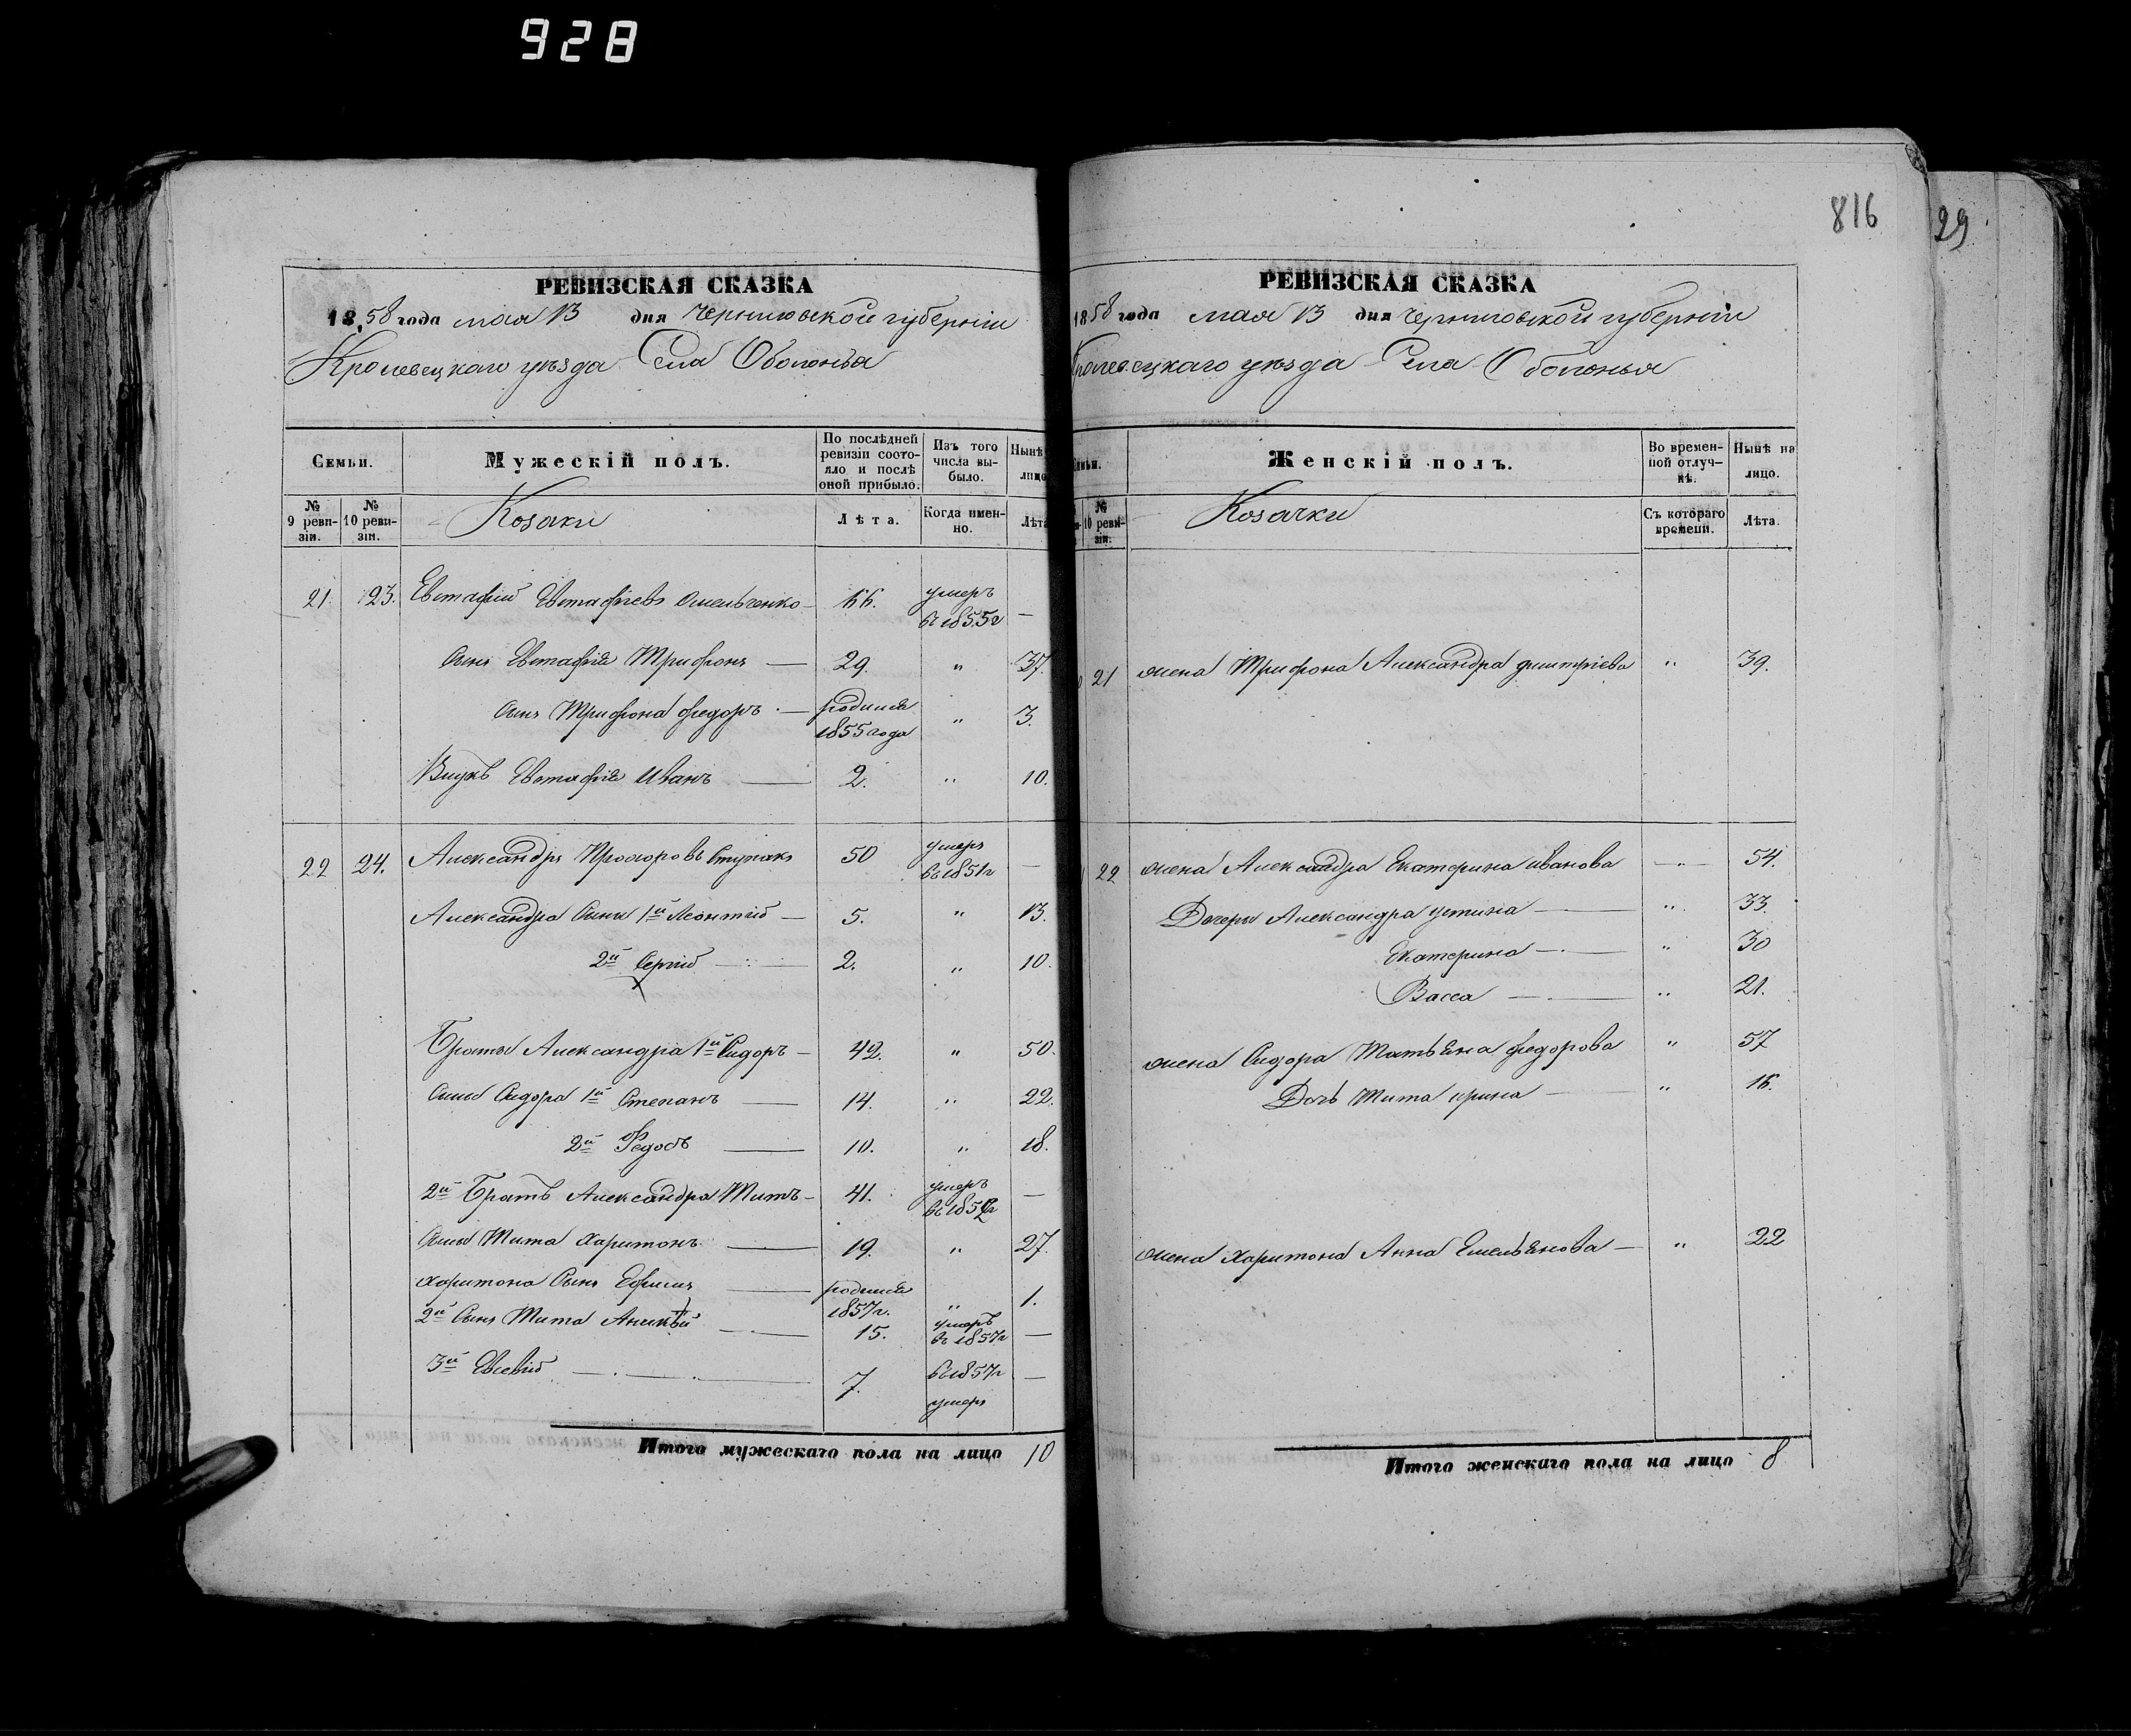 928
816
29
РЕВИЗСКАЯ СКАЗКА
1858 года мая 13 дня Черниговской губерніи
Кролевецкаго уѣзда Села Оболонья
Семьи.
Мужескій полъ.
По послѣдней ревизіи состояло и послѣ оной прибыло.
Изъ того числа выбыло.
Нынѣ лицо
№ 9 ревизіи.
№ 10 ревизіи.
Козаки
Лѣта.
Когда именно.
Лѣта
21. 23. Евстафій Евстафіевъ Омельченко 66. умеръ въ 1855г —
Сынъ Евстафія Трифонъ — 29. " 37.
Сынъ Трифона Федоръ — родился 1855 года " 3.
Внукъ Евстафія Иванъ — 2. " 10.
22 24. Александръ Прохоровъ Ступакъ 50 умеръ въ 1851г —
Александра Сыны 1й Леонтій — 5. " 13.
2й Сергій — 2. " 10.
Братья Александра 1й Сидоръ — 42. " 50.
Сыны Сидора 1й Степанъ — 14. " 22.
2й Федосъ — 10. " 18.
2й Братъ Александра Титъ — 41. умеръ въ 1852г —
Сыны Тита Харитонъ — 19. " 27.
Харитона Сынъ Ефимъ — родился 1857г. " 1.
2й Сынъ Тита Аникѣй — 15. умеръ въ 1857г —
3й Евсевій — 7. въ 1857г умеръ —
Итого мужескаго пола на лицо 10
РЕВИЗСКАЯ СКАЗКА
1858 года мая 13 дня Черниговской губерніи
Кролевецкаго уѣзда Села Оболонья
Женскій полъ.
Во временной отлучкѣ.
Нынѣ на лицо.
№ 10 ревизіи.
Козачки
Съ котораго времени.
Лѣта.
21 жена Трифона Александра Дмитріева " 39.
22 жена Александра Екатерина Иванова — " — 54.
Дочери Александра Устина — " 33.
Екатерина — " 30
Васса — " 21.
жена Сидора Татьяна Федорова " 57
Дочь Тита Ирина — " 16.
жена Харитона Анна Емельянова — " 22
Итого женскаго пола на лицо 8